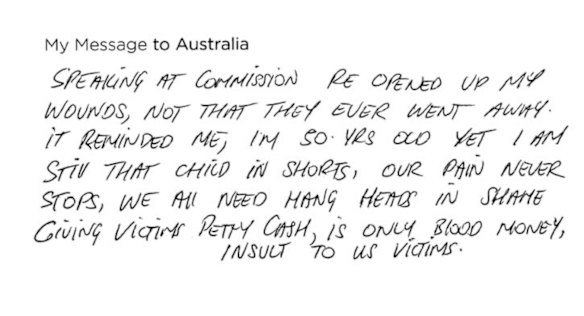 My Message to Australia
SPEAKING AT COMMISSION RE OPENED UP MY
WOUNDS, NOT THAT THEY EVER WENT AWAY.
IT REMINDED ME, I'M 50. YRS OLD YET I AM
STILL THAT CHILD IN SHORTS, OUR PAIN NEVER
STOPS, WE All NEED HANG HEADS IN SHAME
GIVING VICTIMS PETTY CASH, IS ONLY BLOOD MONEY,
INSULT TO US VICTIMS.